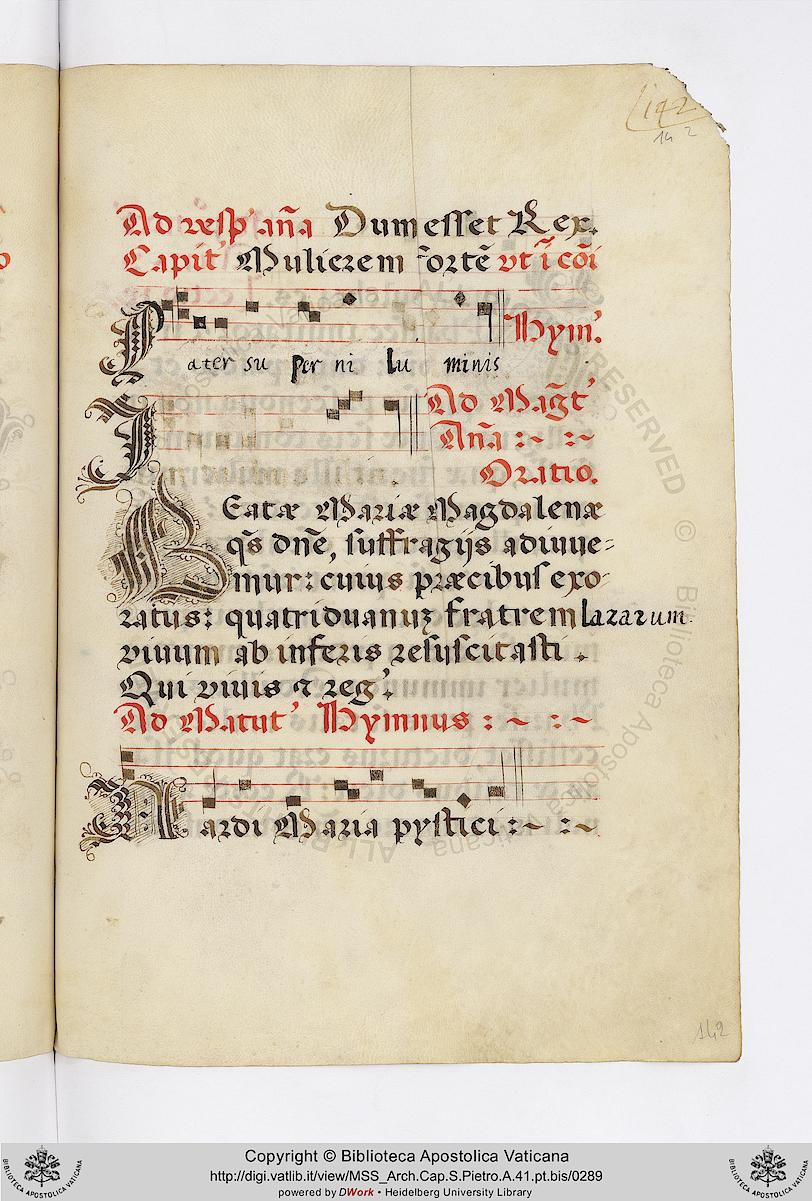 142
14 2
Ad vesp' aña Dum esset Rex.
Capit' Mulierem fortē vt ĩ cōi
Hym'.
Pater su per ni lu minis
Ad Mag̃t'
Aña :~ :~
I
Oratio.
BEatæ Mariæ Magdalenæ
q̃s dñe, suffragijs adiuue=
mur: cuius præcibus exo-
ratus: quatriduanuȝ fratrem lazarum
viuum ab inferis resuscitasti .
Qui viuis ⁊ reg'.
Ad Matut' Hymnus :~ :~
Nardi Maria pystici :~ :~
142
ALL RIGHTS RESERVED © Biblioteca Apostolica Vaticana
Copyright © Biblioteca Apostolica Vaticana
http://digi.vatlib.it/view/MSS_Arch.Cap.S.Pietro.A.41.pt.bis/0289
powered by DWork • Heidelberg University Library
BIBLIOTECA APOSTOLICA VATICANA
BIBLIOTECA APOSTOLICA VATICANA